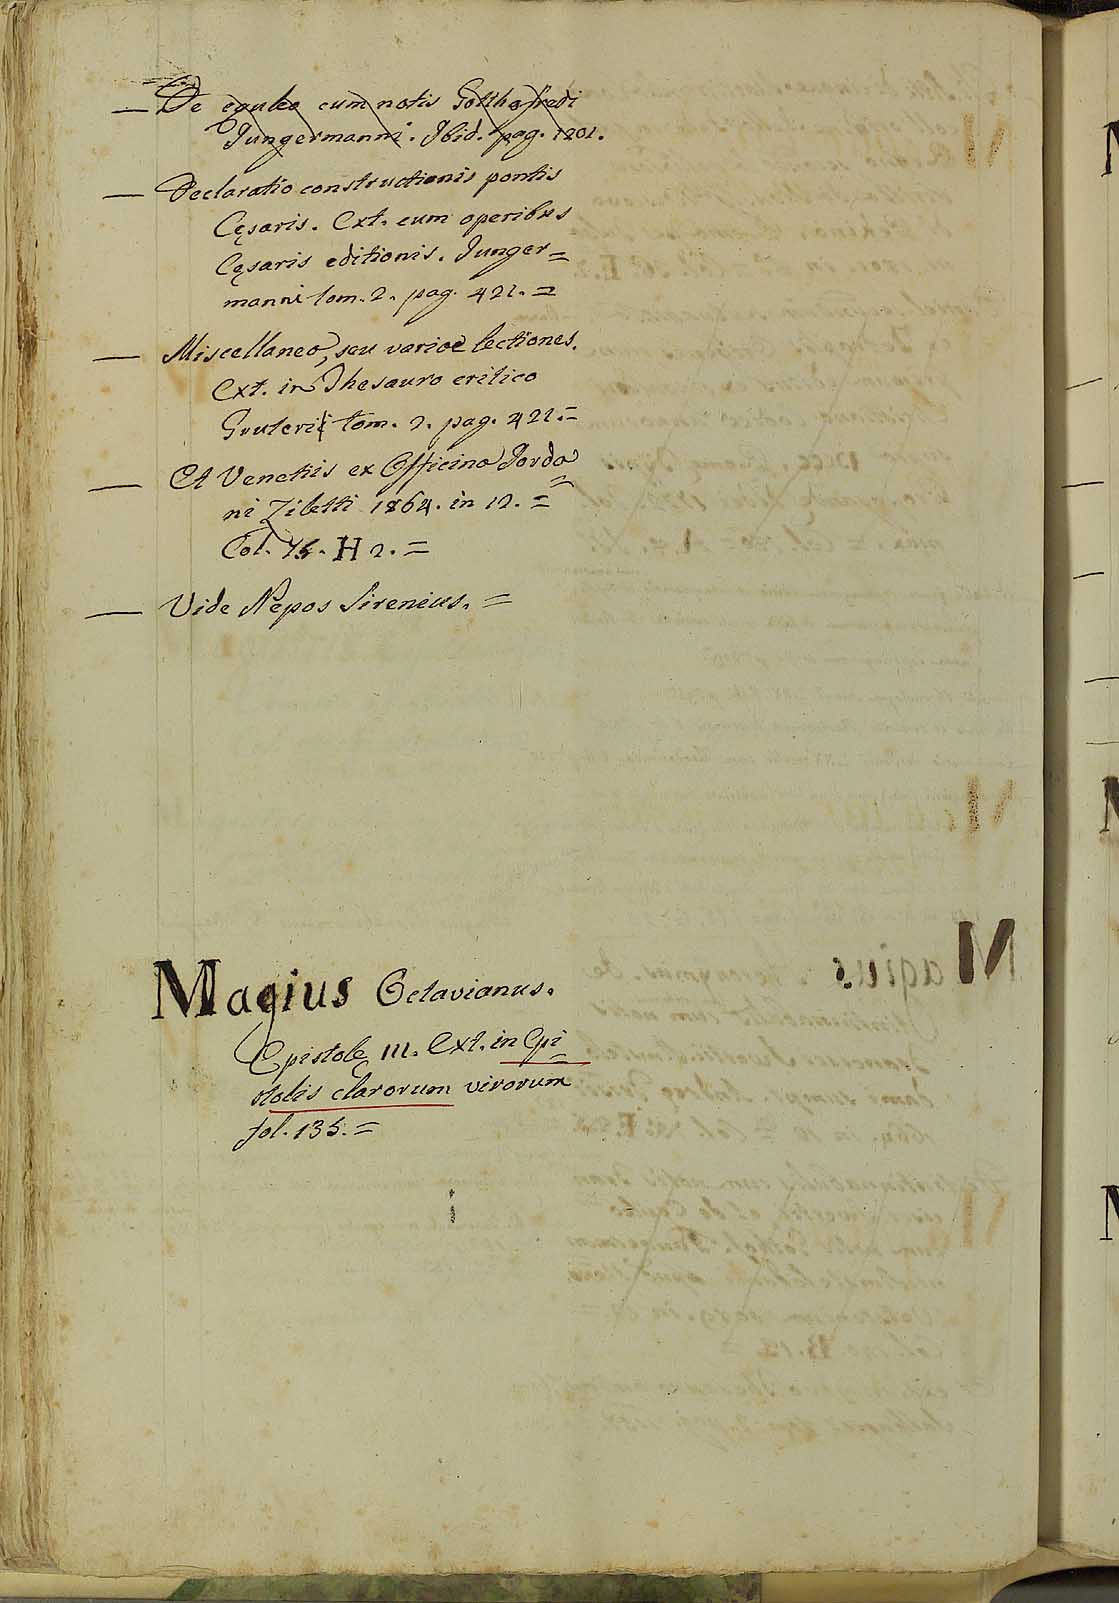 — De equleo cum notis Gothofredi
Jungermanni. Ibid. pag. 1201.
— Declaratio constructionis pontis
Cęsaris. Ext. cum operibus
Cęsaris editionis. Junger=
manni tom. 2. pag. 421. =
— Miscellanea, seu variae lectiones.
Ext. in Thesauro critico
Gruteri tom. 2. pag. 421. =
— Et Venetiis ex Officina Jorda=
ni Ziletti 1864. in 12. =
Col. 75. H 2. =
— Vide Nepos Sirenius. =
Magius Octavianus.
Epistolę III. Ext. in Epi=
stolis clarorum virorum
fol. 135. =